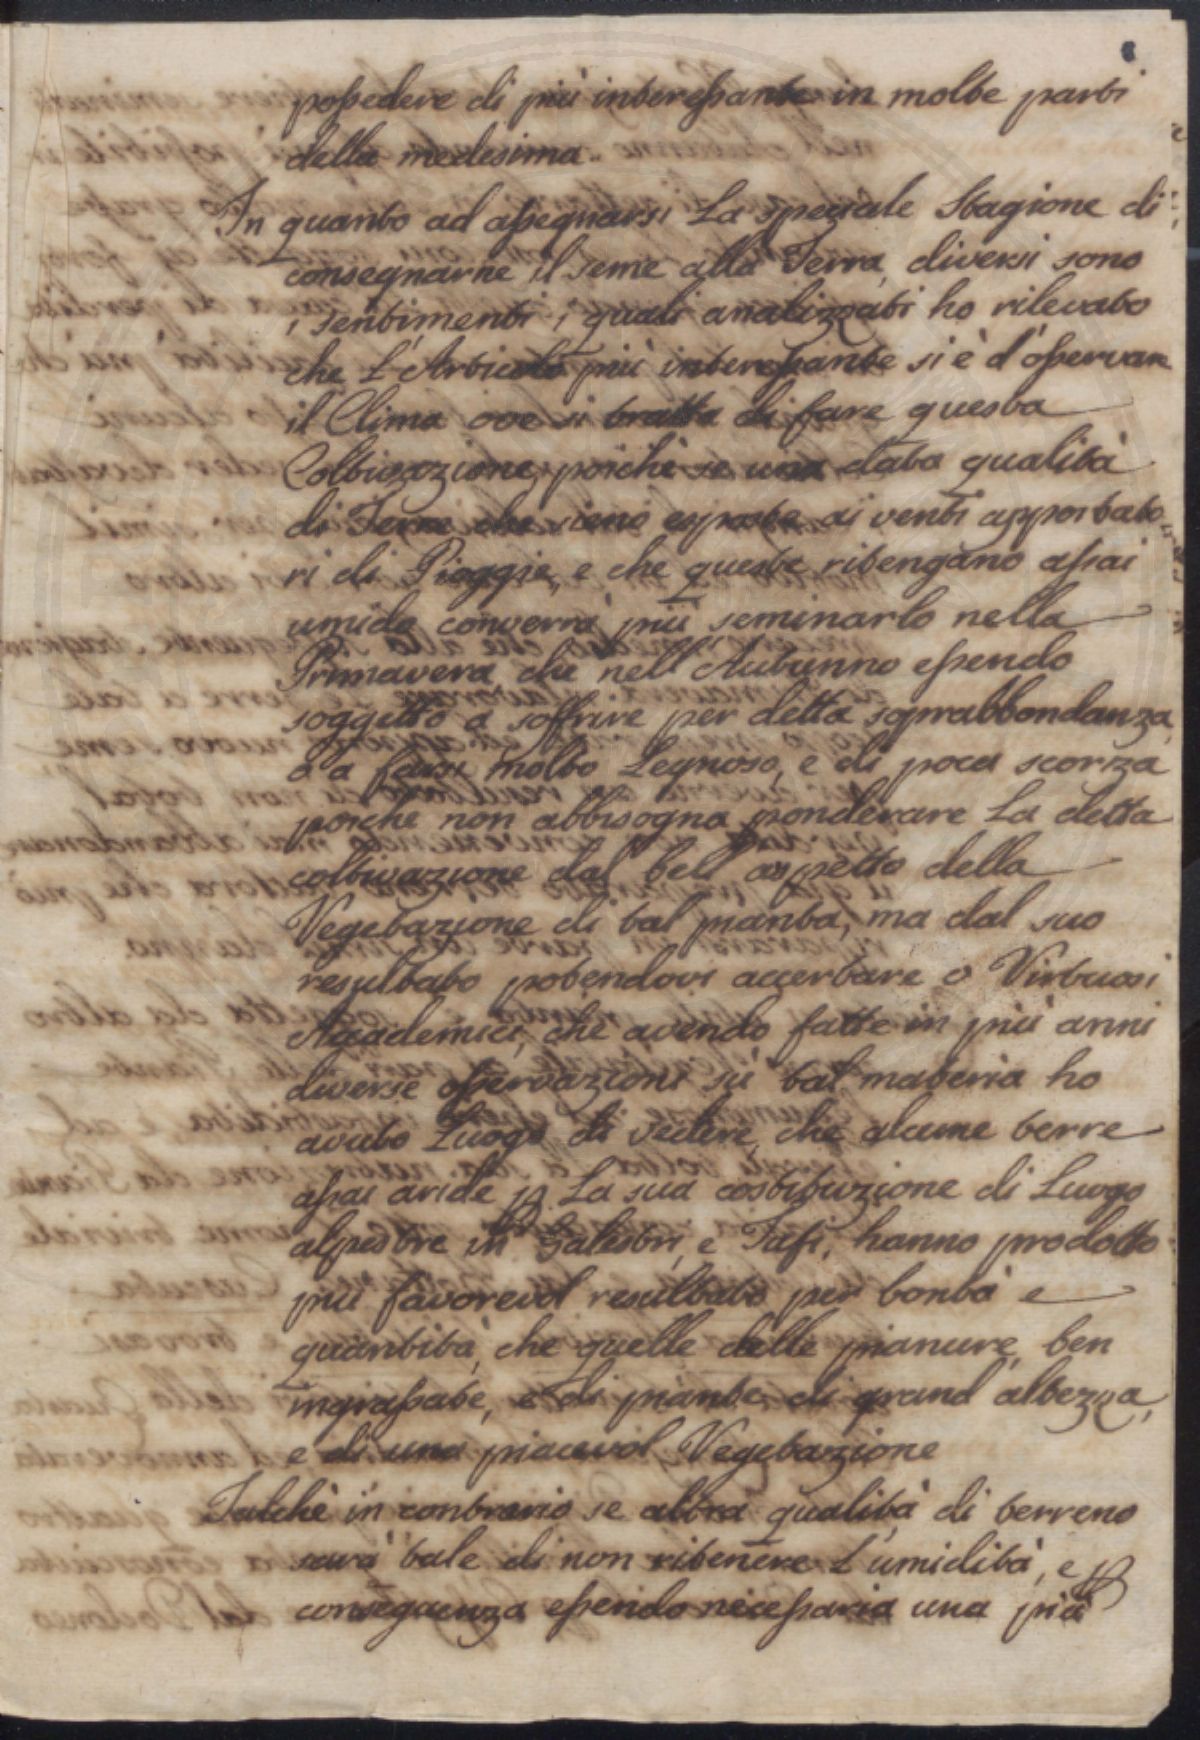 possedere di più interessante in molte parti
della medesima.
In quanto ad assegnarsi La speciale Stagione di
consegnarne il seme alla Terra, diversi sono
i sentimenti, i quali analizzati ho rilevato
che L'Articolo più interessante si è d'osservare
il Clima ove si tratta di fare questa
Coltivazione, poichè se una data qualità
di Terre che sieno esposte ai venti apportato-
ri di Pioggie, e che queste ritengano assai
umido converrà più seminarlo nella
Primavera che nell'Autunno essendo
soggetto a soffrire per detta soprabbondanza,
o a farsi molto Legnoso, e di poca scorza
poiche non abbisogna ponderare La detta
coltivazione dal bell'aspetto della
Vegetazione di tal pianta, ma dal suo
resultato potendovi accertare o Virtuosi
Accademici, che avendo fatte in più anni
diverse osservazioni sù tal materia ho
avuto Luogo di vedere, che alcune terre
assai aride p La sua costituzione di Luogo
alpestre in Galestri, e Tufi, hanno prodotto
più favorevol resultato per bontà e
quantità, che quelle delle pianure, ben
ingrassate, e di piante di grand'altezza,
e di una piacevol Vegetazione
Talchè in contrario se altra qualità di terreno
sarà tale di non ritenere L'umidità, e p
conseguenza essendo necessaria una più